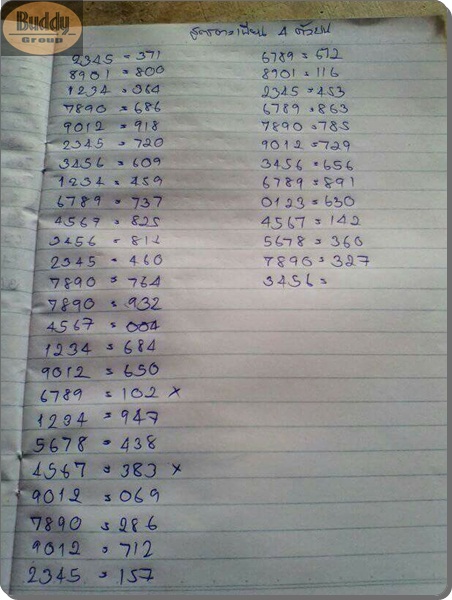 Buddy
Group
สูตรทะเนียน 4 ตัวบน
2345 = 371
8901 = 800
1234 = 364
7890 = 686
9012 = 918
2345 = 720
3456 = 609
1234 = 459
6789 = 737
4567 = 825
3456 = 814
2345 = 460
7890 = 764
7890 = 932
4567 = 004
1234 = 684
9012 = 650
6789 = 102 ×
1234 = 947
5678 = 438
4567 = 383 ×
9012 = 069
7890 = 286
9012 = 712
2345 = 157
6789 = 572
8901 = 116
2345 = 453
6789 = 863
7890 = 785
9012 = 729
3456 = 656
6789 = 891
0123 = 630
4567 = 142
5678 = 360
7890 = 327
3456 =